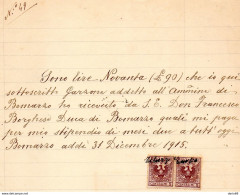 N.° 49
Sono lire Novanta (£ 90) che io qui
sottoscritto Garzone addetto all'Ammin. di
Bomarzo ho ricevuto da S. E. Don Francesco
Borghese Duca di Bomarzo quali mi paga
per mio stipendio di mesi due a tutt'oggi
Bomarzo addì 31 Dicembre 1915.